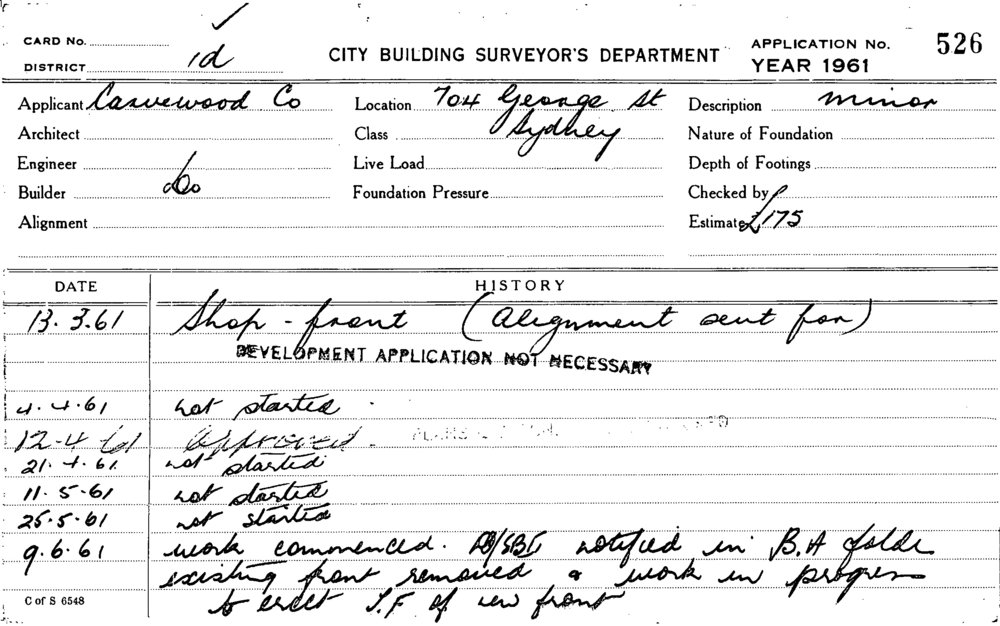 CARD No.
DISTRICT 1d
CITY BUILDING SURVEYOR'S DEPARTMENT
APPLICATION No. 526
YEAR 1961
Applicant Carvewood Co
Location 704 George St
Sydney
Description minor
Architect
Class
Nature of Foundation
Engineer
Live Load
Depth of Footings
Builder do
Foundation Pressure
Checked by
Alignment
Estimate £175
DATE
HISTORY
13.3.61 Shop-front (Alignment sent for)
DEVELOPMENT APPLICATION NOT NECESSARY
4.4.61 not started
12-4-61 Approved.
21.4.61 not started
11.5.61 not started
25.5.61 not started
9.6.61 work commenced. notified in B.A folder
existing front removed & work in progress
to erect S.F of new front
C of S 6548